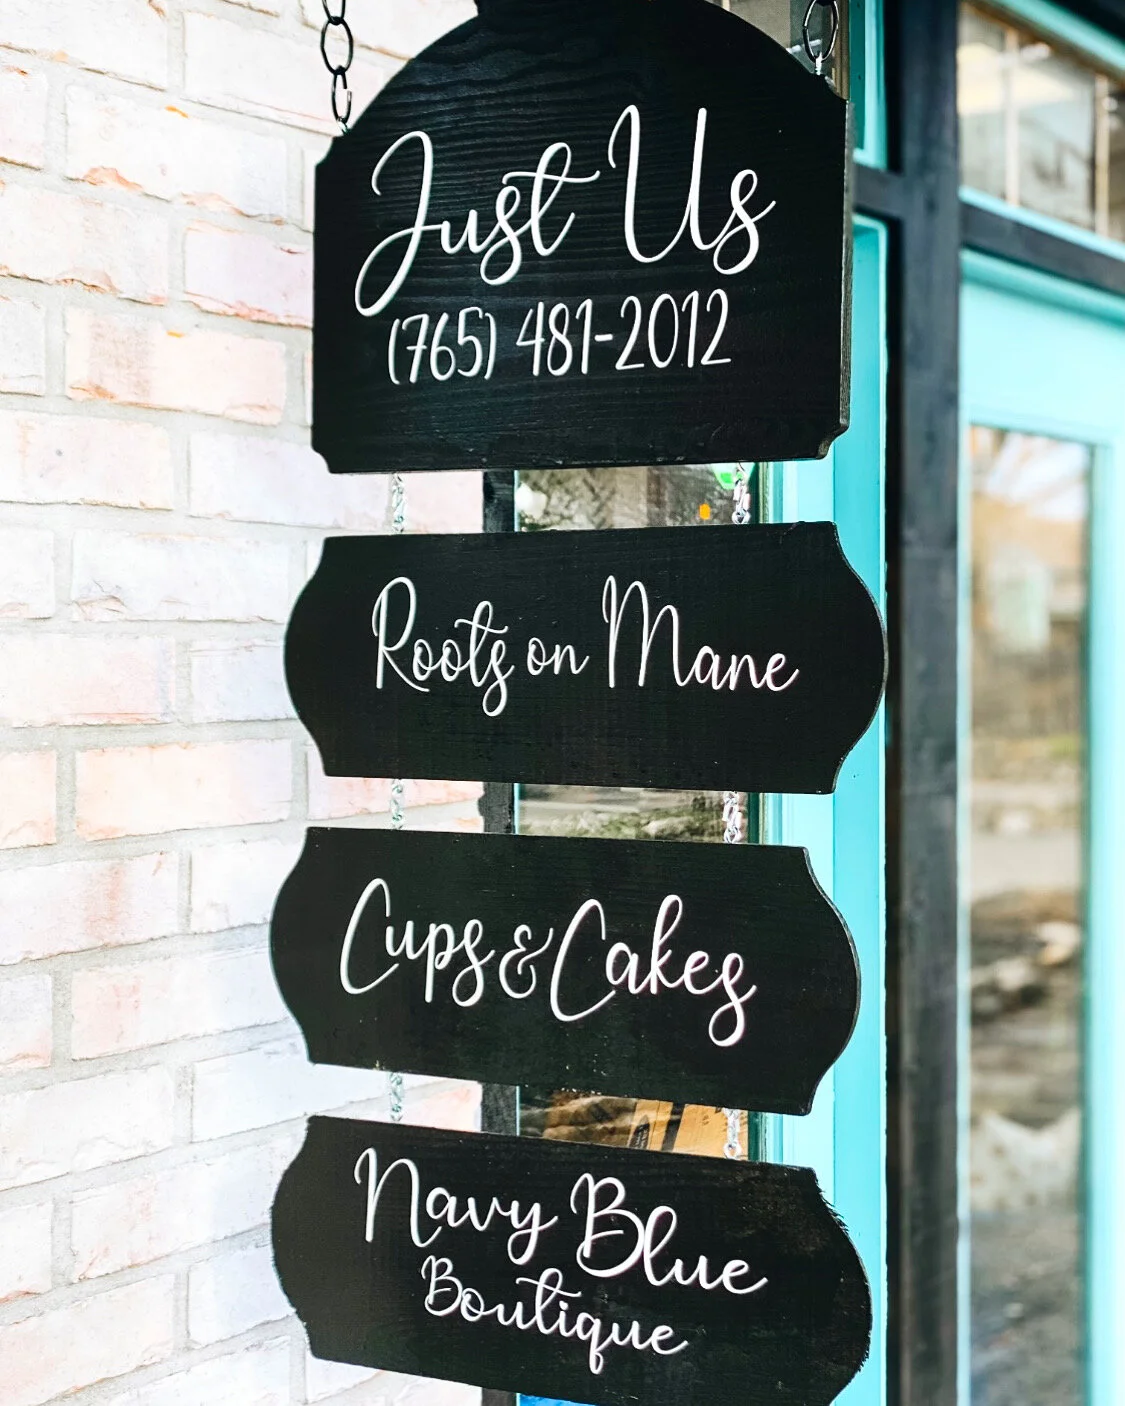 Just Us
(765) 481-2012
Roots on Mane
Cups & Cakes
Navy Blue
Boutique